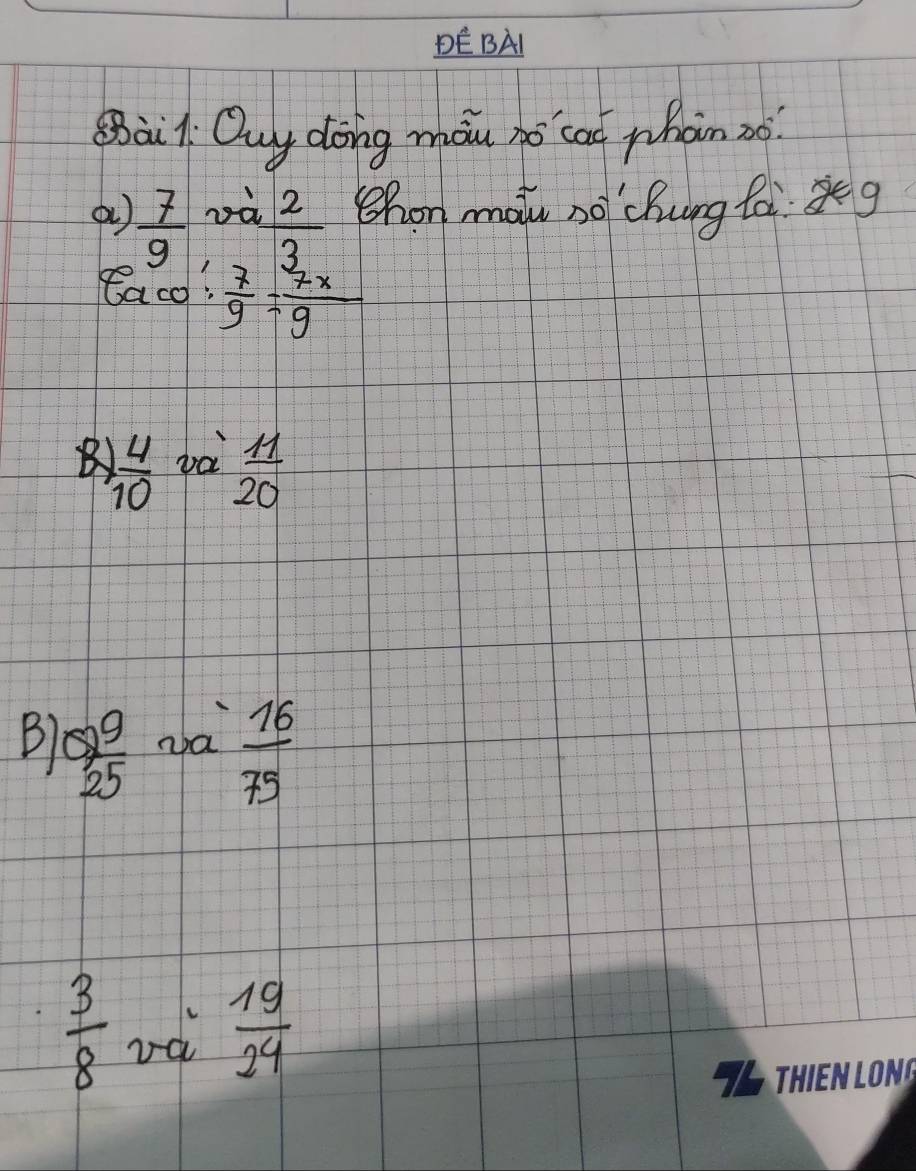 ĐỀ BÀI
Bài 1: Quy đồng mẫu số các phân số.
a) 7/9 và 2/3 Chọn mẫu số chung là: 9
Ta có: 7/9 = 7x/9
B) 4/10 và 11/20
B) 9/25 và 16/75
3/8 và 19/24
THIEN LONG